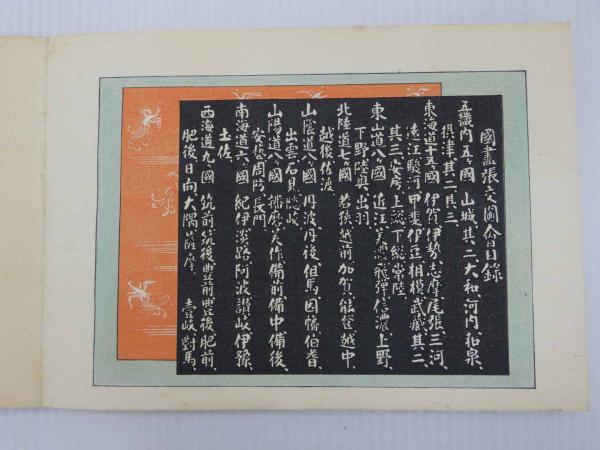 國盡張交圖會目錄
五畿内五ヶ國 山城其二大和、河内、和泉、
摂津其二其三、
東海道十五ヶ國 伊賀伊勢、志摩尾張三河、
遠江駿河甲斐伊豆相模、武蔵其二、
其三安房、上総下総常陸
東山道八ヶ國 近江美濃飛彈信濃上野、
下野陸奥、出羽
北陸道七ヶ國 若狭越前、加賀能登越中、
越後佐渡、
山陰道八ヶ國 丹波丹後、但馬、因幡伯耆、
出雲石見隠岐、
山陽道八ヶ國 播磨美作備前備中備後、
安藝周防長門
南海道六ヶ國 紀伊淡路阿波讃岐伊豫、
土佐、
西海道九ヶ國 筑前筑後豊前豊後肥前、
肥後日向大隅薩摩、 壹岐對馬、